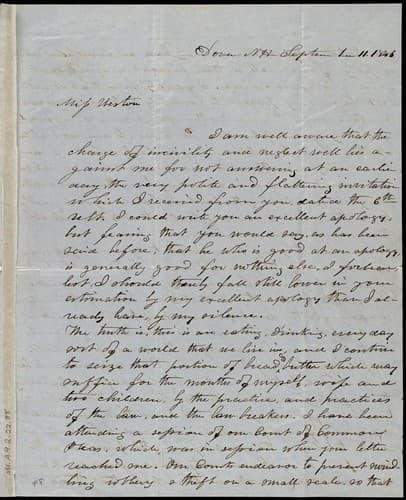 Dover NH September 11. 1846
Miss Weston
I am well aware that the
charge of incivility and neglect will lie a-
gainst me for not answering at an earlier
day, the very polite and flattering invitation
which I received from you, dated the 6th
I could write you an excellent apology,
but fearing that you would say, as has been
said before, that he who is good at an apology
is generally good for nothing else, I forbear,
lest I should thereby fall still lower in your
estimation by my excellent apology than I al-
ready have, by my silence.
The truth is, this is an eating, drinking, every day
sort of a world that we live in, and I continue
to seize that portion of bread & butter which may
suffice for the mouths of myself, wife and
two children, by the practice, and practices
of the law, and the law breakers. I have been
attending a session of our Court of Common
Pleas, which was in session when your letter
reached me. Our Courts endeavor to prevent
robbery & theft on a small scale, so that
Ms. A. 9. 2. 22. 98